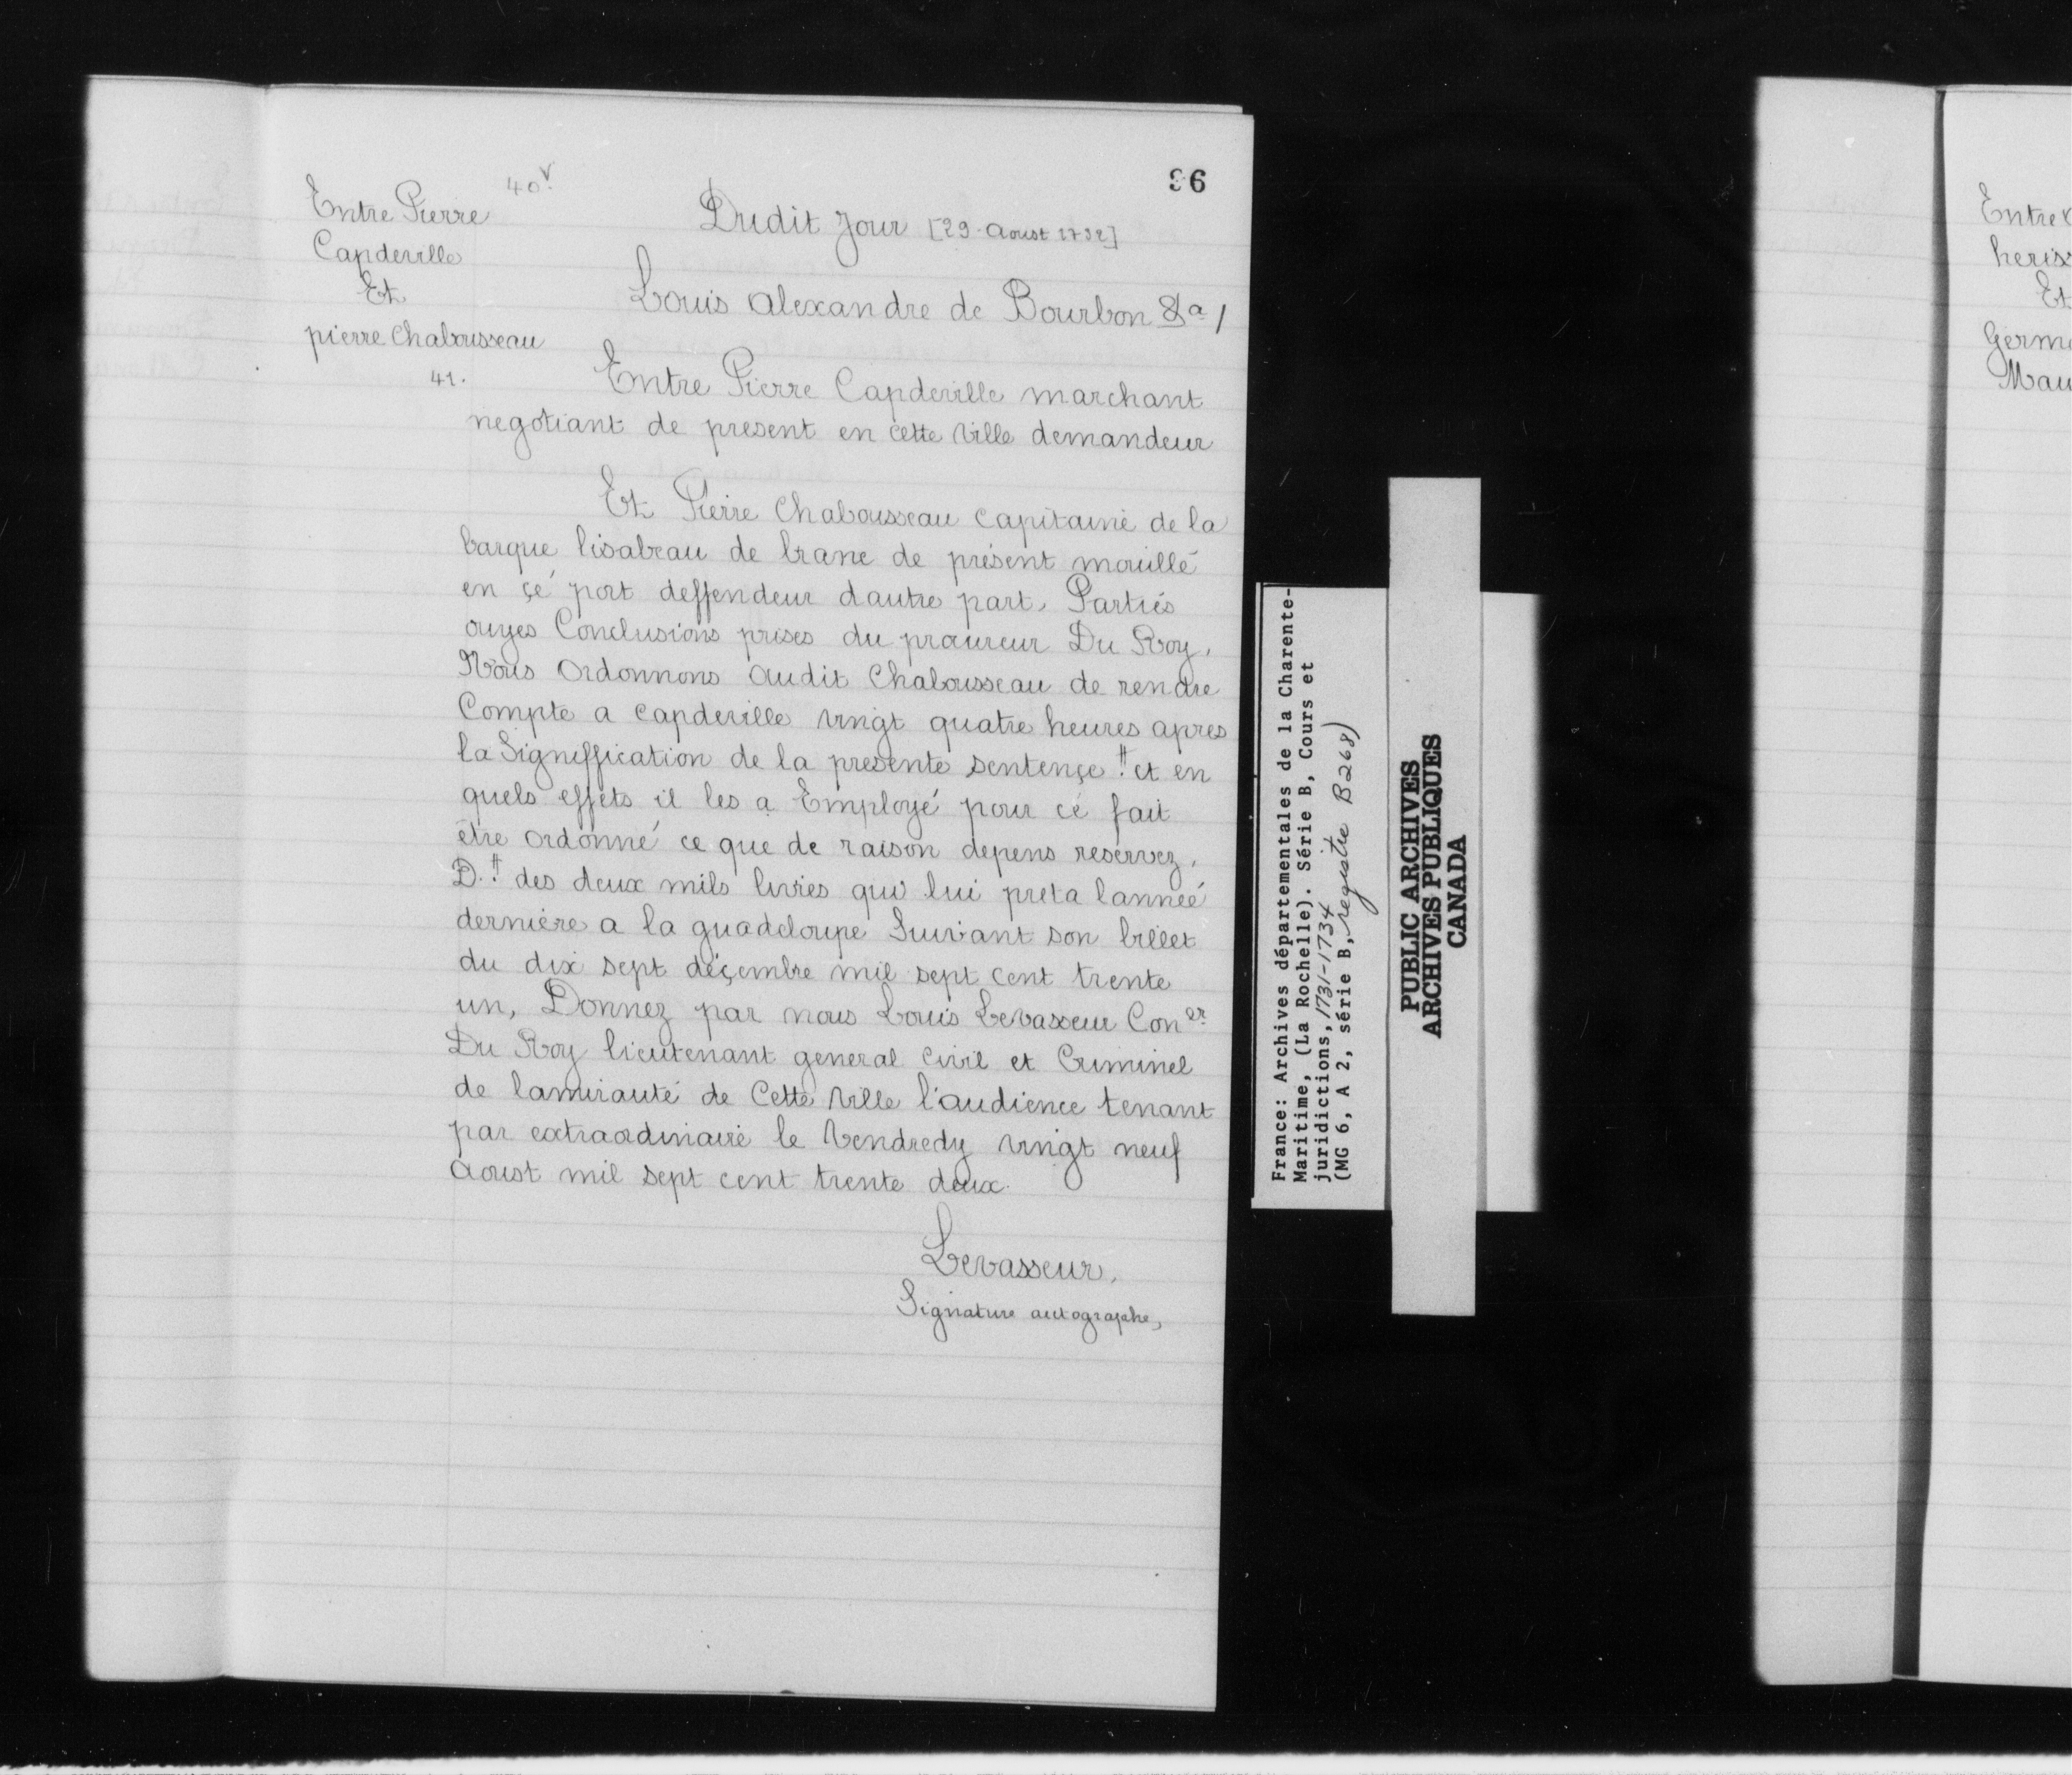 96
40v.
Entre Pierre
Capderille
Et
pierre Chabousseau
41.
Dudit Jour [29 Aoust 1732]
Louis Alexandre de Bourbon &a /
Entre Pierre Capderille marchant
negotiant de present en cette Ville demandeur
Et Pierre Chabousseau Capitaine de la
barque lisabeau de brane de présent mouillé
en çé port deffendeur dautre part. Partiés
ouyes Conclusions prises du procureur Du Roy.
Nous Ordonnons Audit Chabousseau de rendre
Compte a Capderille vingt quatre heures apres
la Signeffication de la presente Sentençe .# et en
quels effets il les a Employé pour cé fait
être Ordonné ce que de raison depens reservez.
D.# des deux mils livres qu'il lui preta lanneé
derniére a la guadeloupe Suivant son billet
du dix sept déçembre mil sept cent trente
un, Donnez par nous Louis Levasseur Coner
Du Roy lieutenant general Civil et Criminel
de lamirauté de Cette Ville l'audience tenant
par extraordinaire le Vendredy vingt neuf
Aoust mil sept cent trente deux.
Levasseur.
Signature autographe,
France: Archives départementales de la Charente-
Maritime, (La Rochelle). Série B, Cours et
juridictions, 1731-1734
(MG 6, A 2, série B, registre B268)
PUBLIC ARCHIVES
ARCHIVES PUBLIQUES
CANADA
heriss
Et
Germa
Mau